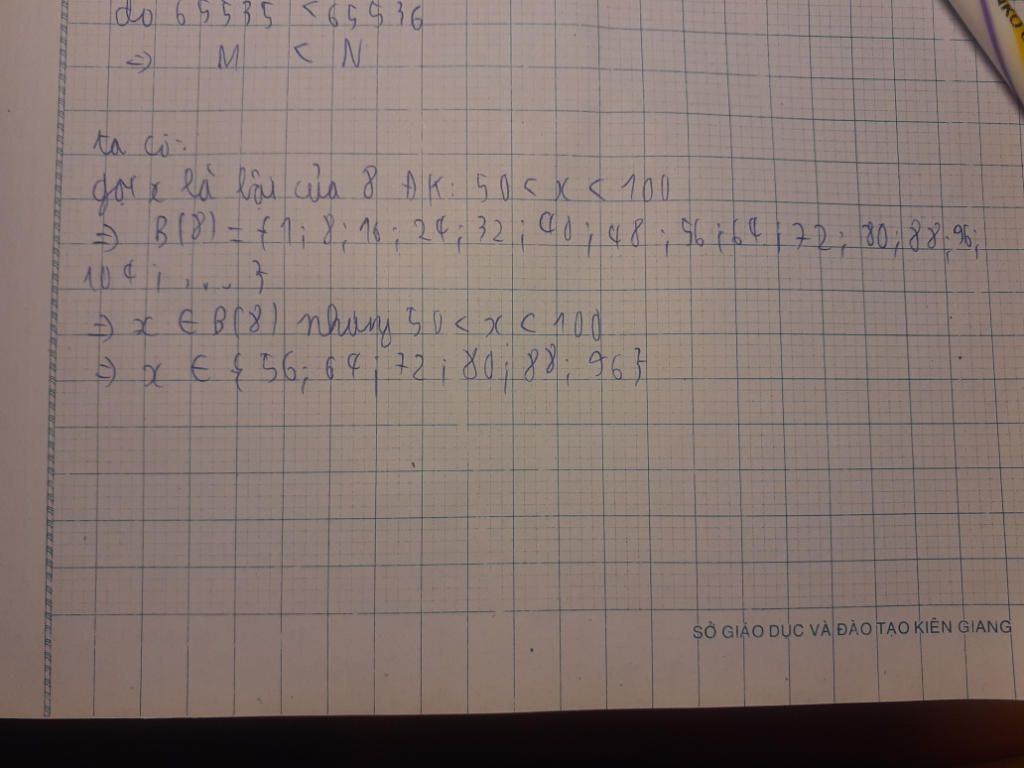 do 65535 < 65536
=> M < N
ta có:
gọi x là bội của 8 ĐK: 50 < x < 100
=> B(8) = {1; 8; 16; 24; 32; 40; 48; 56; 64; 72; 80; 88; 96;
104; .... }
=> x ∈ B(8) nhưng 50 < x < 100
=> x ∈ {56; 64; 72; 80; 88; 96}
SỞ GIÁO DỤC VÀ ĐÀO TẠO KIÊN GIANG